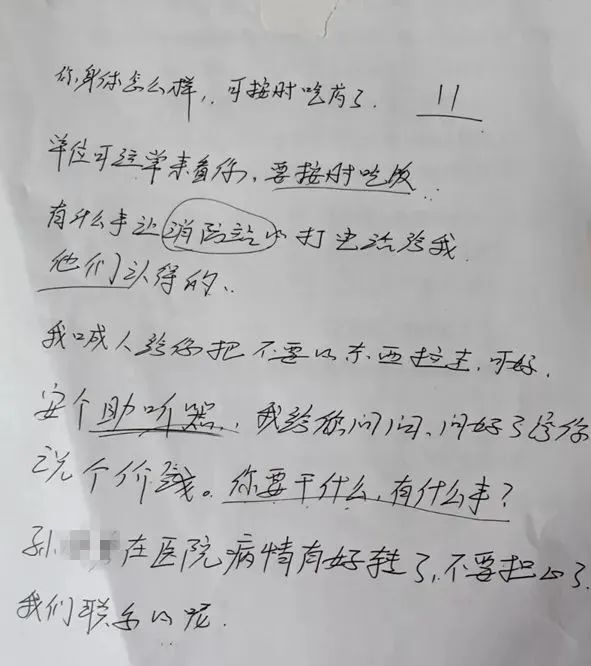 你身体怎么样,可按时吃药了. 11
单位可过来看你,要按时吃饭.
有什么事让消防站的打电话给我.
他们认得的.
我喊人给你把不要的东西拉走,可好.
安个助听器,我给你问问、问好了给你
说个价钱。你要干什么,有什么事?
孙 在医院病情有好转了,不要担心了.
我们联系的呢.